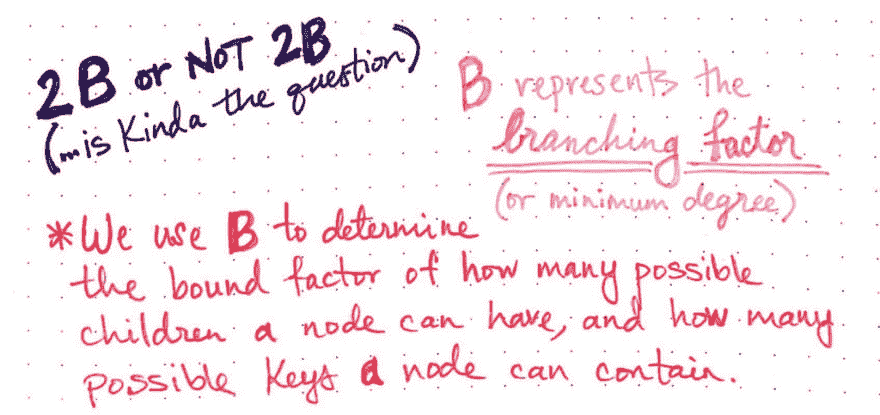 2B or NOT 2B
(...is Kinda the question)
B represents the
branching factor
(or minimum degree)
*We use B to determine
the bound factor of how many possible
children a node can have, and how many
possible Keys a node can contain.